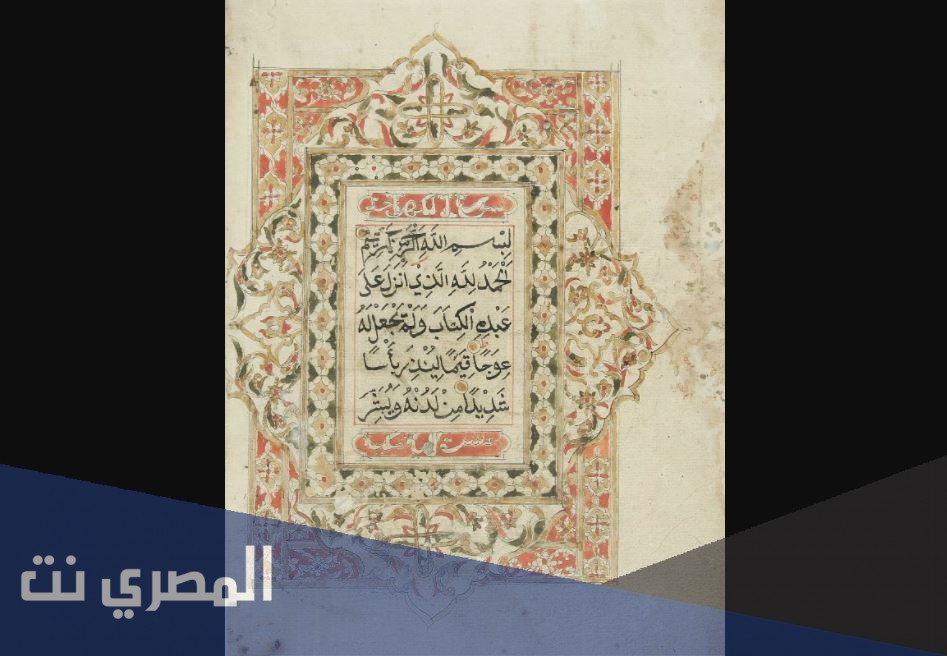 سورة الكهف
بِسْمِ اللَّهِ الرَّحْمَٰنِ الرَّحِيمِ
الْحَمْدُ لِلَّهِ الَّذِيْ أَنْزَلَ عَلَى
عَبْدِهِ الْكِتَابَ وَلَمْ يَجْعَلْ لَهُ
عِوَجًا قَيِّمًا لِيُنْذِرَ بَأْسًا
شَدِيْدًا مِنْ لَدُنْهُ وَيُبَشِّرَ
المصري نت